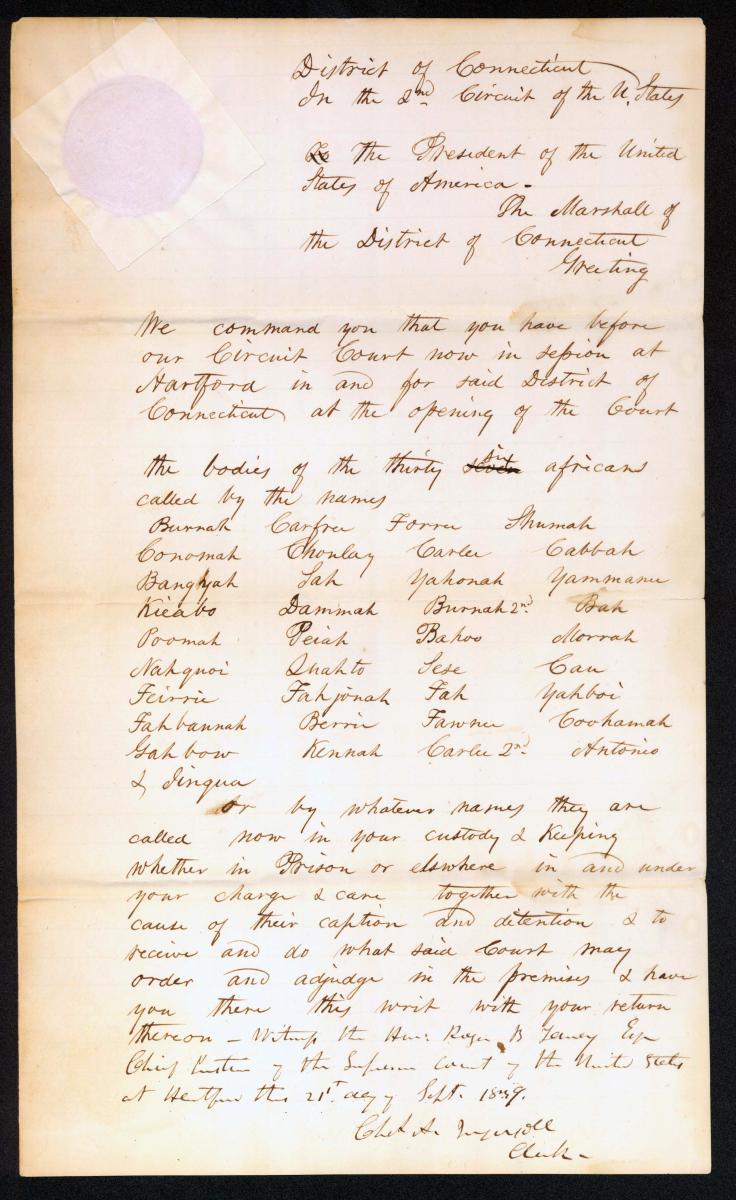 District of Connecticut
In the 2nd Circuit of the U. States
The President of the United
States of America -
The Marshall of
the District of Connecticut
Greeting
We command you that you have before
our Circuit Court now in session at
Hartford in and for said District of
Connecticut at the opening of the Court
the bodies of the thirty seven six africans
called by the names
Burnah Carfree Forree Shumah
Conomah Choolay Carlee Cabbah
Banghyah Sah Yahonah Yammanee
Kieabo Dammah Burnah 2nd Bah
Poomah Peiah Bahoo Morrah
Nahquoi Quahto Sese Cau
Feirrie Fahjonah Fah Yahboi
Fahbannah Berrie Fawnee Coohamah
Gahbow Kennah Carlee 2nd Antonio
& Jingua
or by whatever names they are
called now in your custody & Keeping
whether in Prison or elswhere in and under
your charge & care together with the
cause of their caption and detention & to
receive and do what said Court may
order and adjudge in the premises & have
you there this writ with your return
thereon - Witness the Hon: Roger B Taney Esqr
Chief Justice of the Supreme Court of the United States
at Hartford this 21st day of Sept. 1839.
Chas A. Ingersoll
Clerk -